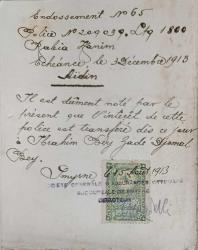 Endossement No 65
Police No 209039. Ltq 1800
Rabia Hanem
Echéance, le 3 Décembre 1913
Aidin
Il est dûment noté par le
présent que l'intérêt de cette
police est transféré dès ce jour
à Ibrahim Bey Zadé Djemal
Bey.
Smyrne 1913